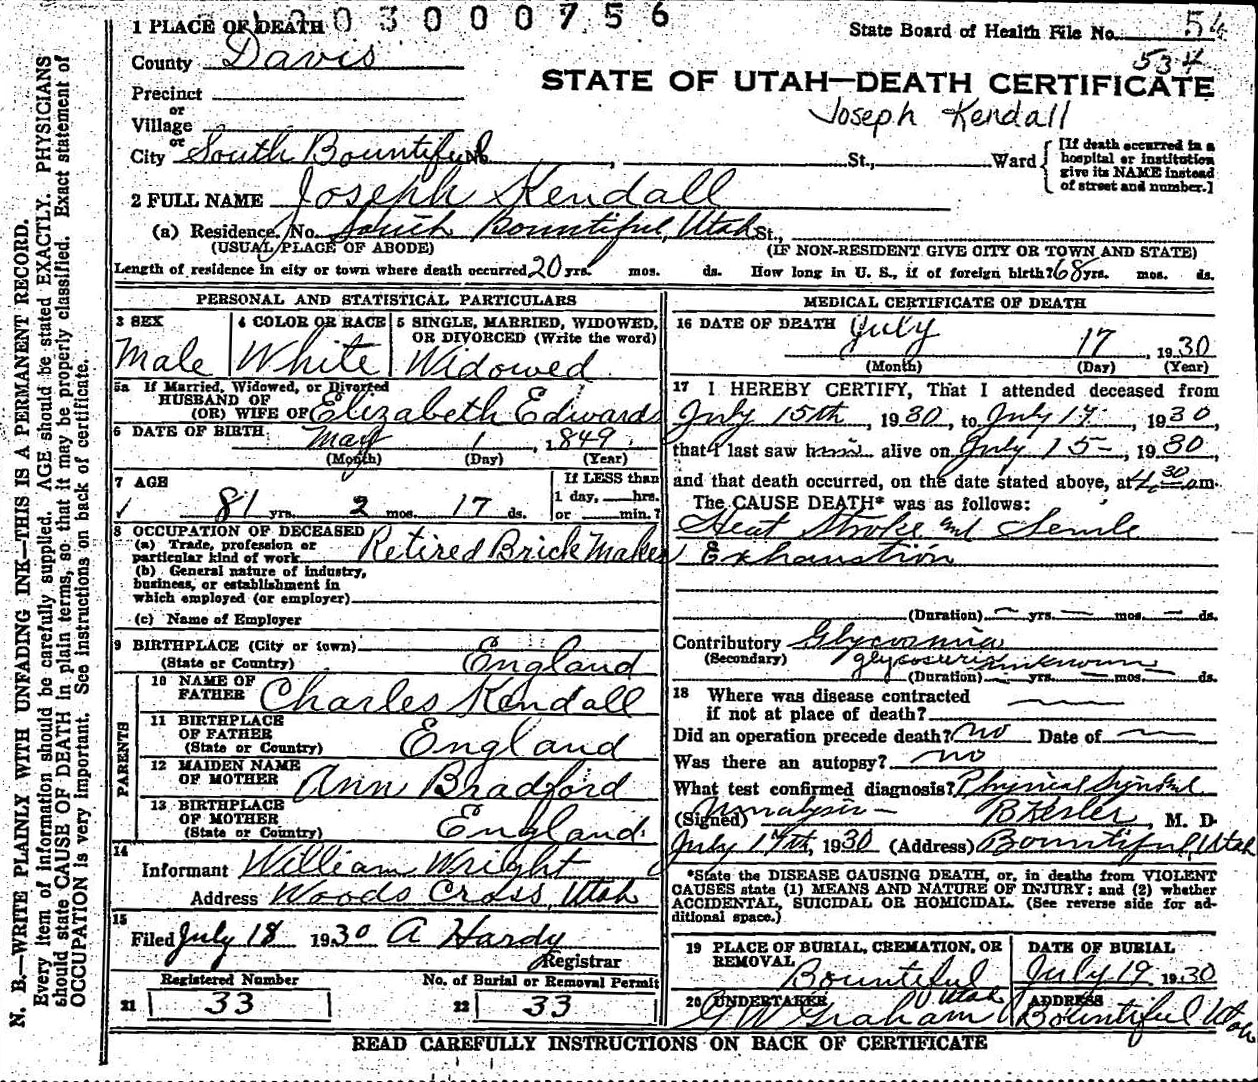 1 PLACE OF DEATH 03000756
State Board of Health File No. 54
County Davis
534
STATE OF UTAH—DEATH CERTIFICATE
Precinct
or
Village
Joseph Kendall
or
City South Bountiful St., Ward
[If death occurred in a hospital or institution give its NAME instead of street and number.]
2 FULL NAME Joseph Kendall
(a) Residence. No. South Bountiful, Utah St.,
(USUAL PLACE OF ABODE) (IF NON-RESIDENT GIVE CITY OR TOWN AND STATE)
Length of residence in city or town where death occurred 20 yrs. mos. ds. How long in U. S., if of foreign birth? 68 yrs. mos. ds.
PERSONAL AND STATISTICAL PARTICULARS
3 SEX
Male
4 COLOR OR RACE
White
5 SINGLE, MARRIED, WIDOWED,
OR DIVORCED (Write the word)
Widowed
5a If Married, Widowed, or Divorced
HUSBAND OF
(OR) WIFE OF Elizabeth Edwards
6 DATE OF BIRTH May 1, 1849
(Month) (Day) (Year)
7 AGE
81 yrs. 2 mos. 17 ds.
If LESS than
1 day, hrs.
or min.?
8 OCCUPATION OF DECEASED
(a) Trade, profession or
particular kind of work Retired Brick Maker
(b) General nature of industry,
business, or establishment in
which employed (or employer)
(c) Name of Employer
9 BIRTHPLACE (City or town)
(State or Country) England
PARENTS
10 NAME OF
FATHER Charles Kendall
11 BIRTHPLACE
OF FATHER
(State or Country) England
12 MAIDEN NAME
OF MOTHER Ann Bradford
13 BIRTHPLACE
OF MOTHER
(State or Country) England
14
Informant William Wright
Address Woods Cross, Utah
15
Filed July 18 1930 A Hardy
Registrar
Registered Number No. of Burial or Removal Permit
21 33 22 33
MEDICAL CERTIFICATE OF DEATH
16 DATE OF DEATH July 17, 1930
(Month) (Day) (Year)
17 I HEREBY CERTIFY, That I attended deceased from
July 15th, 1930, to July 17, 1930,
that I last saw him alive on July 15-, 1930,
and that death occurred, on the date stated above, at 4:30 am.
The CAUSE DEATH* was as follows:
Heat Stroke and Senile
Exhaustion
(Duration) yrs. mos. ds.
Contributory Glycosuria
(Secondary) glycosuria unknown
(Duration) yrs. mos. ds.
18 Where was disease contracted
if not at place of death?
Did an operation precede death? no Date of
Was there an autopsy? no
What test confirmed diagnosis? Physical
(Signed) B Kesler, M. D.
July 17th, 1930 (Address) Bountiful, Utah
*State the DISEASE CAUSING DEATH, or, in deaths from VIOLENT
CAUSES state (1) MEANS AND NATURE OF INJURY; and (2) whether
ACCIDENTAL, SUICIDAL OR HOMICIDAL. (See reverse side for ad-
ditional space.)
19 PLACE OF BURIAL, CREMATION, OR
REMOVAL
Bountiful Utah
DATE OF BURIAL
July 19 1930
20 UNDERTAKER
G W Graham
ADDRESS
Bountiful Utah
READ CAREFULLY INSTRUCTIONS ON BACK OF CERTIFICATE
N. B.—WRITE PLAINLY WITH UNFADING INK—THIS IS A PERMANENT RECORD.
Every item of information should be carefully supplied. AGE should be stated EXACTLY. PHYSICIANS
should state CAUSE OF DEATH in plain terms, so that it may be properly classified. Exact statement of
OCCUPATION is very important. See instructions on back of certificate.